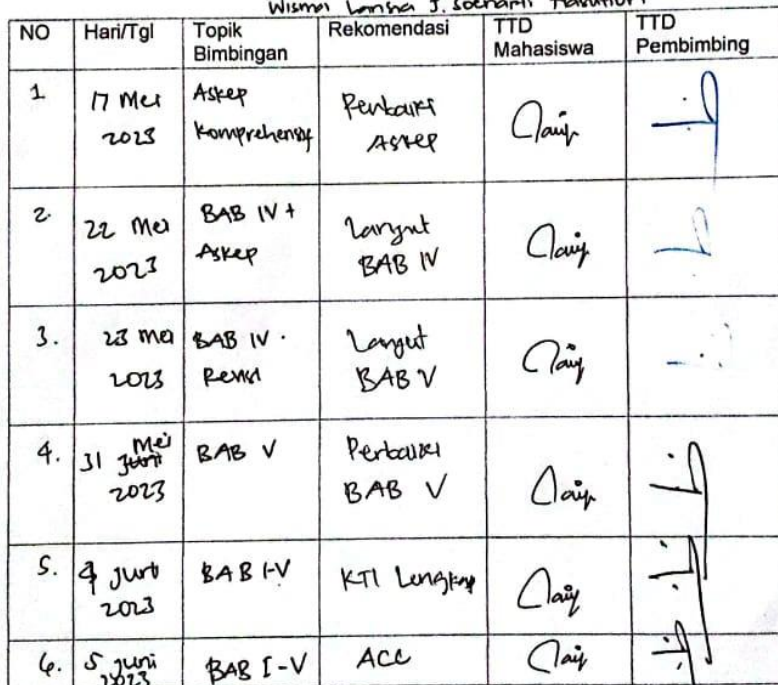 Wisma Lansia J. Soenarti Nasution
NO Hari/Tgl Topik Bimbingan Rekomendasi TTD Mahasiswa TTD Pembimbing
1 17 Mei 2023 Askep Komprehensif Perbaiki Askep
2. 22 Mei 2023 BAB IV + Askep Lanjut BAB IV
3. 23 Mei 2023 BAB IV Revisi Lanjut BAB V
4. 31 Mei 2023 BAB V Perbaiki BAB V
5. 4 Juni 2023 BAB I-V KTI Lengkap
6. 5 Juni 2023 BAB I-V ACC